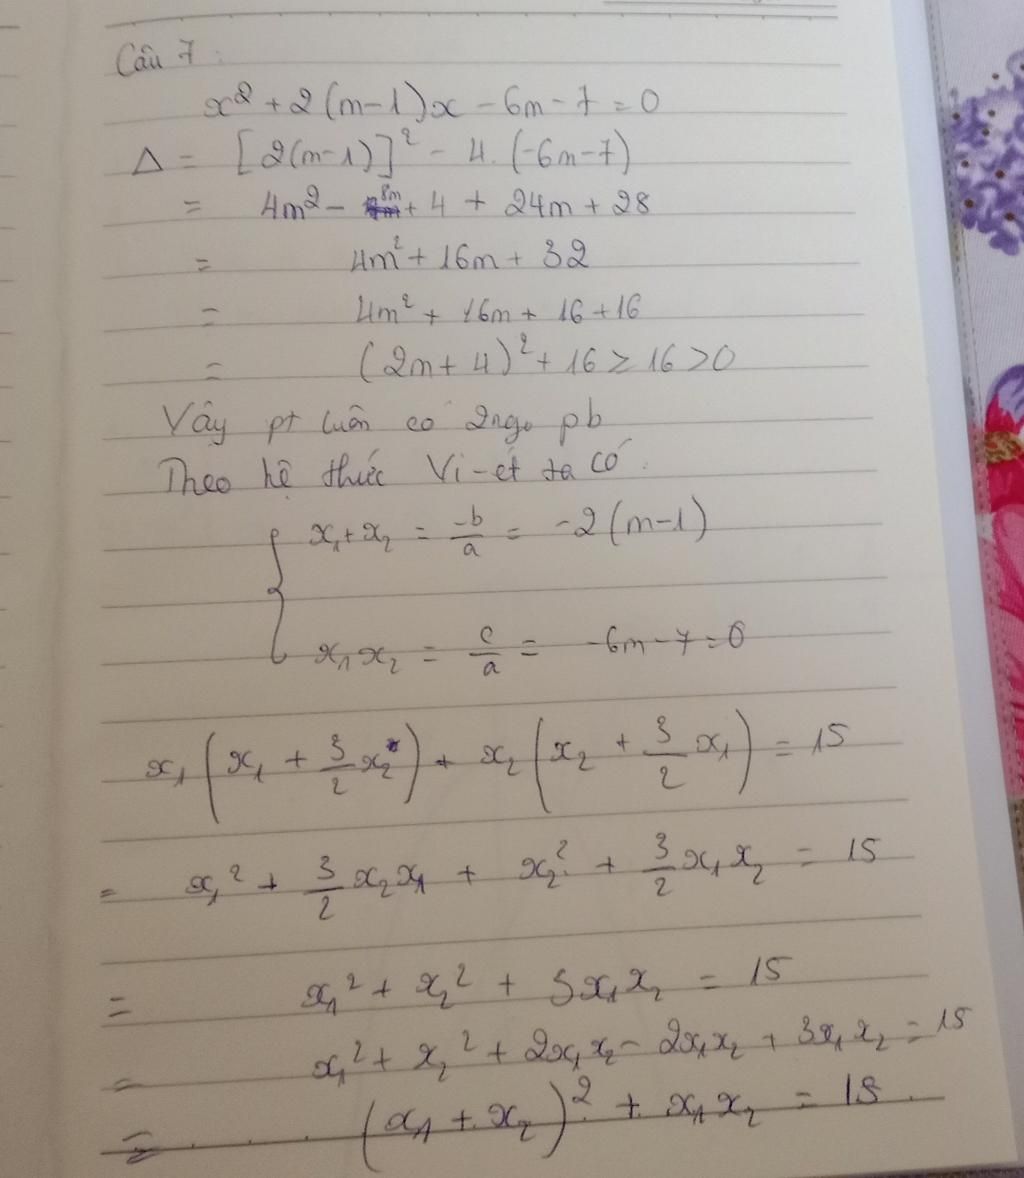 Câu 7:
x² + 2(m-1)x - 6m - 7 = 0
Δ = [2(m-1)]² - 4.(-6m-7)
= 4m² - 8m + 4 + 24m + 28
= 4m² + 16m + 32
= 4m² + 16m + 16 + 16
= (2m + 4)² + 16 ≥ 16 > 0
Vậy pt luôn có 2ngo pb
Theo hệ thức Vi-ét ta có:
{ x₁ + x₂ = -b/a = -2(m-1)
x₁x₂ = c/a = -6m-7=0
x₁(x₁ + 3/2 x₂) + x₂(x₂ + 3/2 x₁) = 15
= x₁² + 3/2 x₂x₁ + x₂² + 3/2 x₁x₂ = 15
= x₁² + x₂² + 3x₁x₂ = 15
= x₁² + x₂² + 2x₁x₂ - 2x₁x₂ + 3x₁x₂ = 15
= (x₁ + x₂)² + x₁x₂ = 15